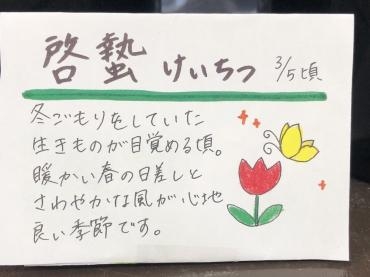 啓蟄 けいちつ 3/5頃
冬ごもりをしていた
生きものが目覚める頃。
暖かい春の日差しと
さわやかな風が心地
良い季節です。